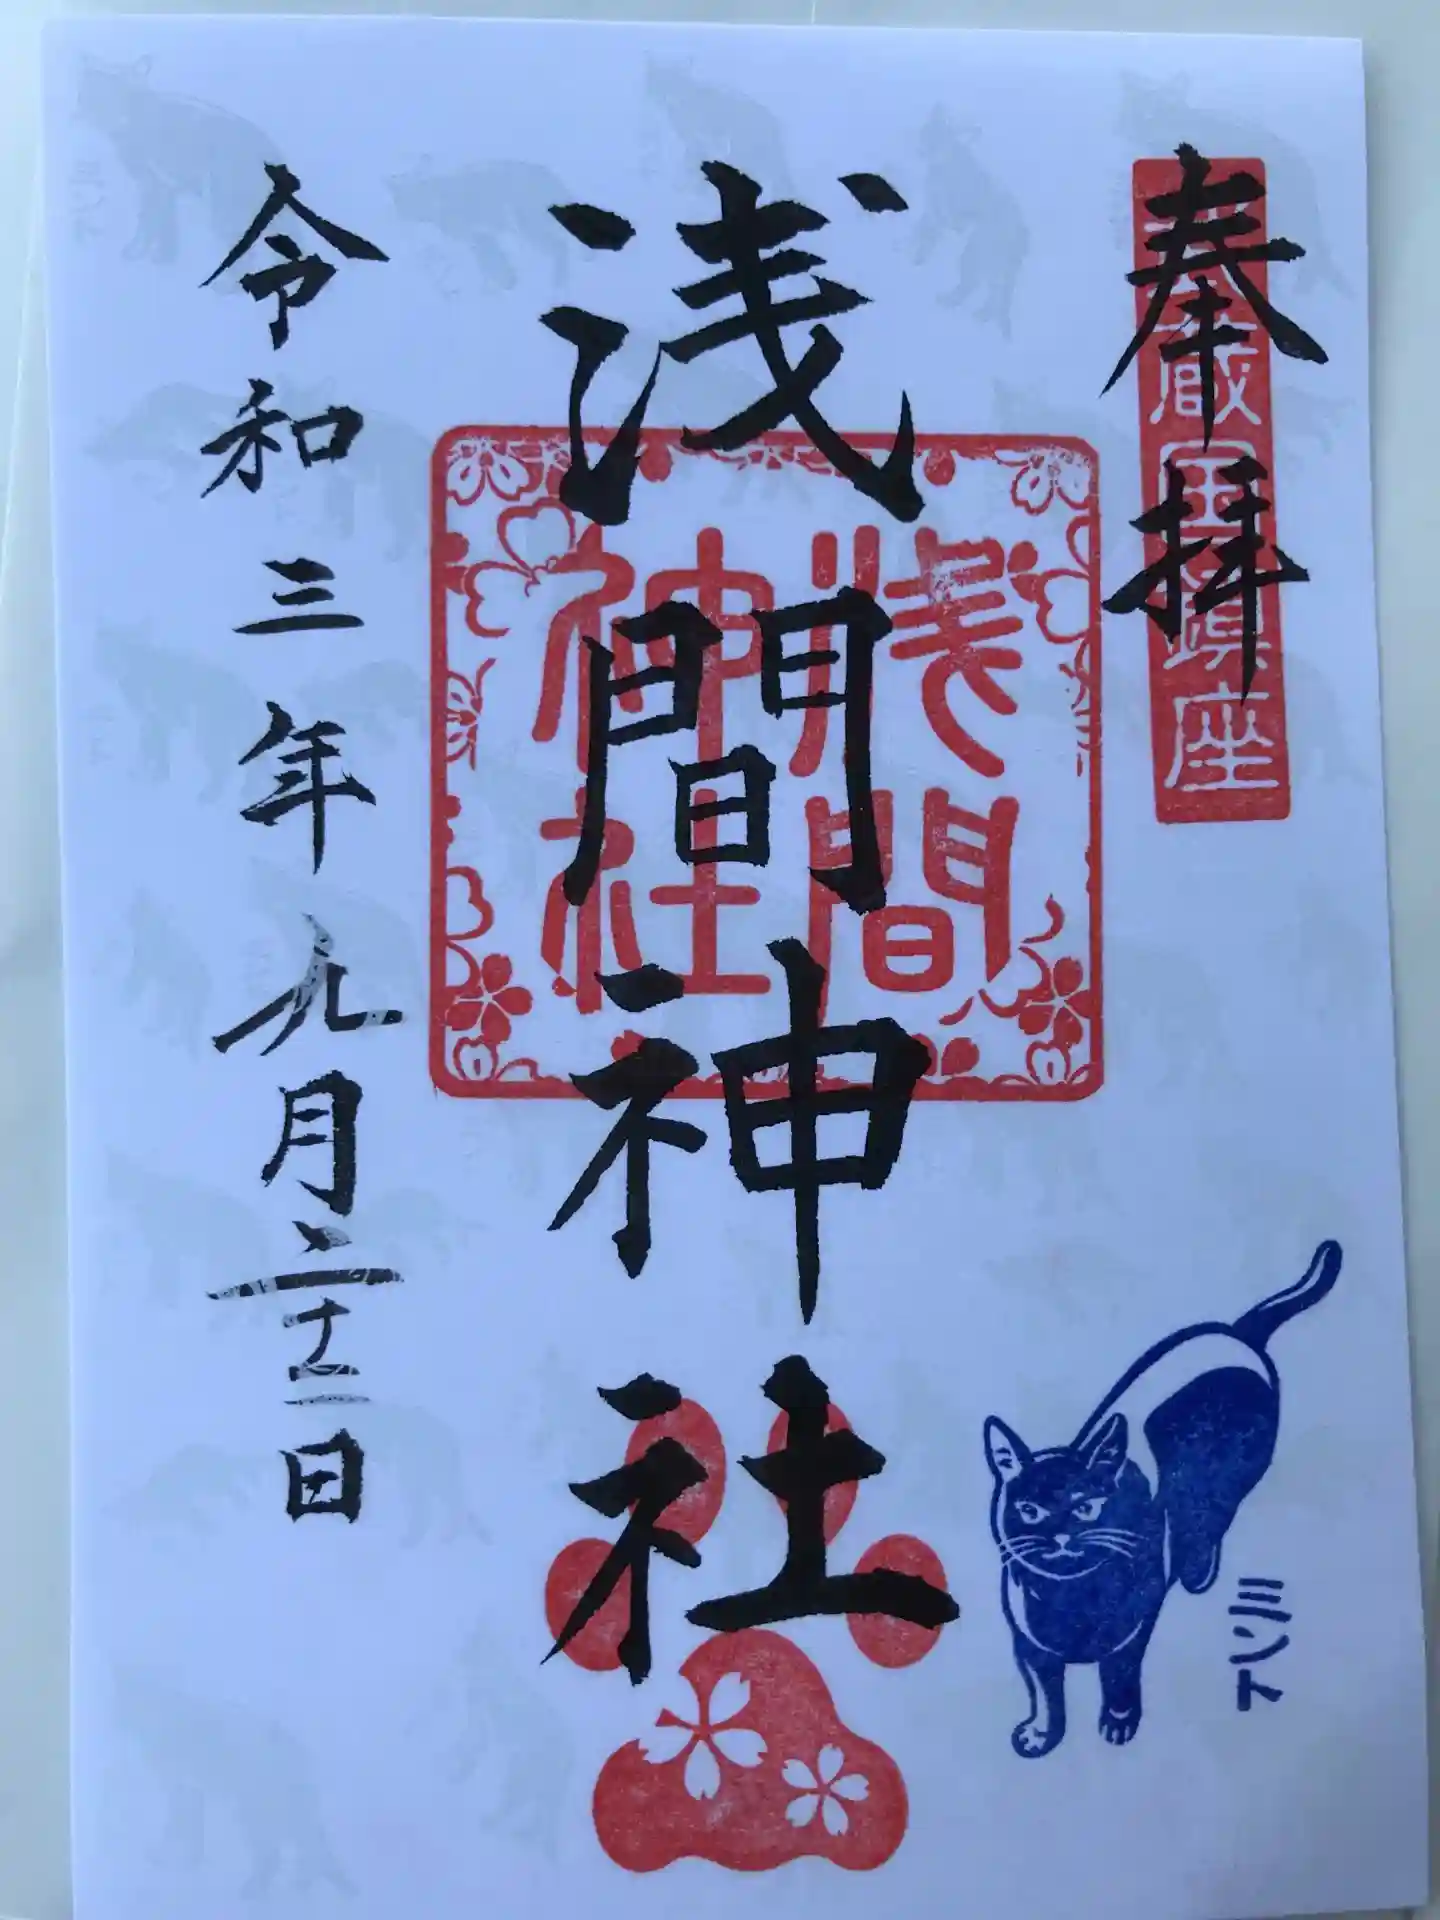 奉拝
武蔵国鎮座
浅間神社
浅間
神社
令和三年九月二十三日
ミント